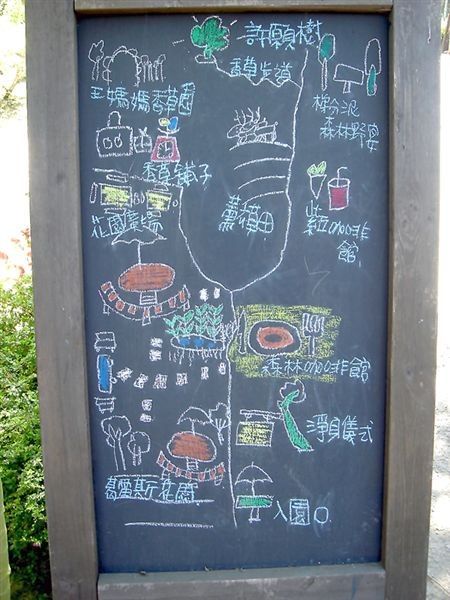 許願樹
香草步道
王媽媽香草園
森林野宴
香草舖子
花園廣場
薰衣草田
紫丘咖啡館
森林咖啡館
淨身儀式
葛雷斯花園
入園口